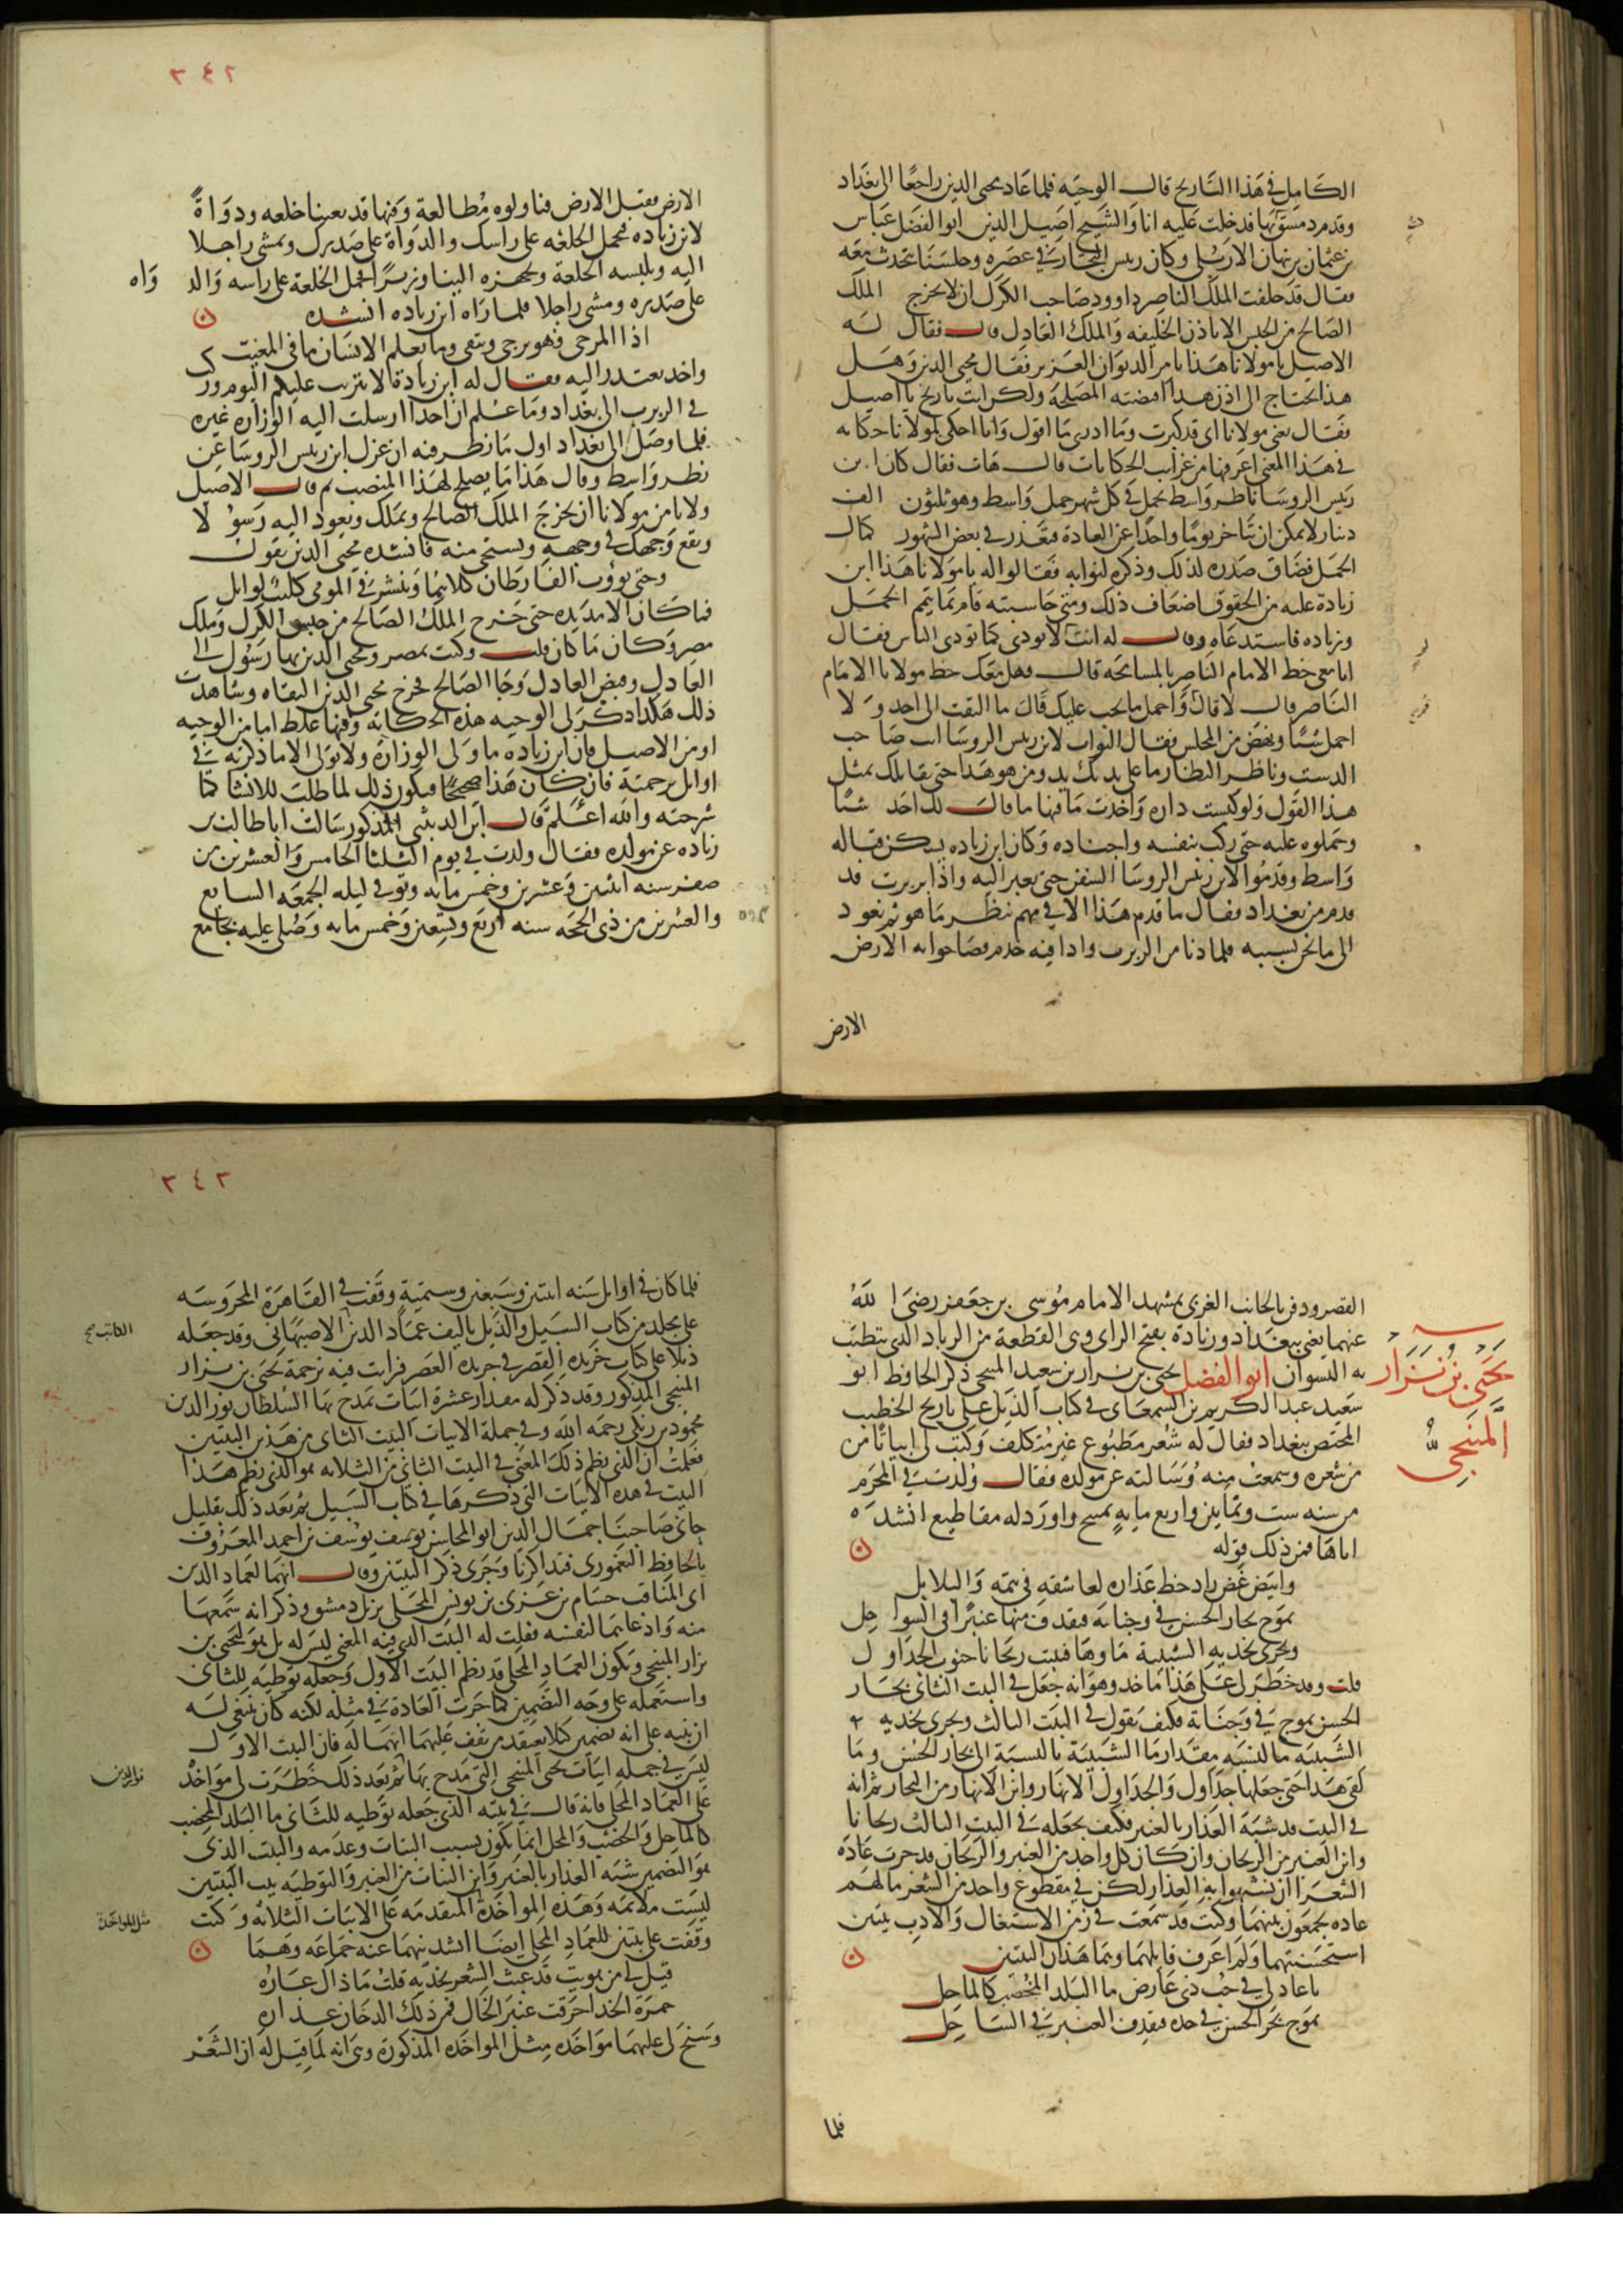 الكامل في هذا التاريخ قال الوجيه فلما عاد محيى الدين راجعا الى بغداد
وقدم دمشق بها قد دخلت عليه انا والشيخ اصيل الدين ابو الفضل عباس
بن عثمان بن نبهان الاربلي وكان رييس التجار في عصره وجلسنا نتحدث معه
فقال قد حلفت الملك الناصر داوود صاحب الكرك ان لا يخرج الملك
الصالح من الحبس الا باذن الخليفه والملك العادل قال فقال له
الاصيل يا مولانا هذا بامر الديوان العزيز فقال محيى الدين وهل
هذا يحتاج الى اذن هذا اقتضته المصلحة ولكن انت تاريخ يا اصيل
فقال يعني مولانا اي قد كبرت وما ادرى ما اقول وانا احكى لمولانا حكايه
في هذا المعنى اعرفها من غرايب الحكايات قال هات فقال كان ابن
رييس الروسا ناظر واسط يحمل في كل شهر حمل واسط وهو ثلثون الف
دينار لا يمكن ان يتاخر يوما واحدا عن العادة فتعذر في بعض الشهور كمال
الحمل فضاق صدره لذلك وذكره لنوابه فقالوا له يا مولانا هذا ابن
زيادة عليه من الحقوق اضعاف ذلك ومتى حاسبته قام بما يتم الحمل
وزياده فاستدعاه وقال له انت لا تودي كما تودي الناس فقال
انا معي خط الامام الناصر بالمسامحه قال فهل معك خط مولانا الامام
الناصر قال لا قال قم واحمل ما يجب عليك قال ما التفت الى احد ولا
احمل شيا ونهض من المجلس فقال النواب لابن رييس الروسا انت صاحب
الدست وناظر النظار ما على يدك يد ومن هو هذا حتى يقابلك بمثل
هذا القول ولو كبست داره واخذت ما فيها ما قال لك احد شيا
وحملوه عليه حتى ركب بنفسه واجناده وكان ابن زياده يسكن قباله
واسط وقدموا لابن رييس الروسا السفن حتى يعبر اليه واذا بزبزب قد
قدم من بغداد فقال ما قدم هذا الا في مهم ننظر ما هو ثم نعود
الى ما نحن بسببه فلما دنا من الزبزب واذا فيه خدم فصاحوا به الارض
الارض
٣٤٢
الارض فقبل الارض فناولوه مطالعة وفيها قد بعثنا خلعه ودواة
لابن زياده فتحمل الخلعه على راسك والدواة على صدرك وتمشى راجلا
اليه وتلبسه الخلعة وتجهزه الينا وزيرا فحمل الخلعة على راسه والد واه
على صدره ومشى راجلا فلما راه ابن زياده انشده
اذا المرحي فهو يرجى ويتقى وما يعلم الانسان ما في المغيب
واخذ يعتذر اليه فقال له ابن زيادة لا تثريب عليكم اليوم وركب
في الزبزب الى بغداد وما علم ان احدا ارسلت اليه الوزاره غيره
فلما وصل الى بغداد اول ما نظر فيه ان عزل ابن رييس الروسا عن
نظر واسط وقال هذا ما يصلح لهذا المنصب ثم قال الاصيل
ولا نامن مولانا ان يخرج الملك الصالح ويملك وتعود اليه رسولا
ويقع وجهك في وجهه وتستحي منه فانشده محيى الدين يقول
وحتى يووب القارظان كلاهما وينشر في الموتى كليب لوايل
فما كان الا مديده حتى خرج الملك الصالح من حبس الكرك وملك
مصر وكان ما كان قلت وكنت بمصر ومحيى الدين بها رسول الى
العادل وقبض العادل وجا الصالح فخرج محيى الدين التقاه وشاهدت
ذلك هكذا ذكر لى الوجيه هذه الحكايه وفيها غلط اما من الوجيه
او من الاصيل فان ابن زياده ما ولى الوزارة ولا تولى الا ما ذكرته في
اوايل ترجمته فان كان هذا صحيحا فيكون ذلك لما طلب للانشا كما
شرحته والله اعلم قال ابن الدبيثي المذكور سالت ابا طالب بن
زياده عن مولده فقال ولدت في يوم الثلثا الخامس والعشرين من
صفر سنه اثنين وعشرين وخمس مايه وتوفي ليله الجمعه السابع
والعشرين من ذي الحجه سنه اربع وتسعين وخمس مايه وصلى عليه بجامع
القصر ودفن بالجانب الغربي بمشهد الامام موسى بن جعفر رضى الله
عنهما يعني ببغداد وزيادة بفتح الزاى وهى القطعة من الزباد الذى تتطيب
به النسوان ابو الفضل يحيى بن نزار بن سعيد المنبجي ذكر الحافظ ابو
يحيى بن نزار المنبجي
سعيد عبد الكريم بن السمعاني في كتاب الذيل على تاريخ الخطيب
المختص ببغداد فقال له شعر مطبوع غير متكلف وكتب لى ابياتا من
من شعره وسمعت منه وسالته عن مولده فقال ولدت في المحرم
من سنه ست وثمانين واربع مايه بمنبج واورد له مقاطيع انشده
اياها فمن ذلك قوله
وابيض غض زاد خط عذاره لعاشقه في همه والبلابل
تموج بحار الحسن في وجناته فتقذف منها عنبرا في السواحل
وتجرى بخديه الشبيبة ماوها فتنبت ريحانا جنوب الجداول
قلت وقد خطر لي على هذا ماخذ وهو انه جعل في البيت الثاني بحار
الحسن تموج في وجناته فكيف يقول في البيت الثالث وتجرى بخديه
الشبيبه ما النسبه مقدار ما الشبيبة بالنسبة الى بحار الحسن وما
كفى هذا حتى جعلها جداول والجداول الانهار واين الانهار من البحار ثم انه
في البيت قد شبه العذار بالعنبر فكيف يجعله في البيت الثالث ريحانا
واين العنبر من الريحان وان كان كل واحد من العنبر والريحان قد جرت عادة
الشعرا ان يشبهوا به العذار لكن في مقطوع واحد من الشعر ما لهم
عاده يجمعون بينهما وكنت قد سمعت في زمن الاشتغال والادب بيتين
استحسنتهما ولم اعرف قايلهما وهما هذان البيتين
يا عاذلي في حب ذي عارض ما البلد المخصب كالماحل
يموج بحر الحسن في خده فيقذف العنبر في الساحل
فلما
٣٤٣
فلما كان في اوايل سنه اثنتين وسبعين وستمية وقفت في القاهرة المحروسه
على مجلد من كتاب السيل والذيل تاليف عماد الدين الاصبهاني وقد جعله
الكاتب صح
ذيلا على كتاب خريده القصر في جريده العصر فرايت فيه ترجمة يحيى بن نزار
المنبجي المذكور وقد ذكر له مقدار عشرة ابيات يمدح بها السلطان نور الدين
محمود بن زنكي رحمه الله وفي جملة الابيات البيت الثاني من هذين البيتين
فعلمت ان الذى نظم ذلك المعنى في البيت الثاني من الثلاثه هو الذى نظم هذا
البيت في هذه الابيات التي ذكرها في كتاب السيل ثم بعد ذلك بقليل
جاني صاحبنا جمال الدين ابو المحاسن يوسف يوسف بن احمد المعروف
بالحافظ اليغموري فتذاكرنا وجرى ذكر البيتين وقال انهما لعماد الدين
ابى المناقب حسام بن غزى بن يونس المحلى نزيل دمشق وذكر انه سمعها
منه واذ عاهما لنفسه فقلت له البيت الذى فيه المعنى ليس له بل هو ليحيى بن
نزار المنبجي ويكون العماد المحلى قد نظم البيت الاول وجعله توطيه للثاني
واستعمله على وجه التضمين كما جرت العادة في مثله لكنه كان ينبغي له
ان ينبه على انه تضمين كيلا يعتقد من يقف عليهما انهما له فان البيت الاول
ليس في جملة ابيات يحيى المنبجي التي مدح بها ثم بعد ذلك خطرت لى مواخذ
نور الدين
على العماد المحلى فانه قال في بيته الذى جعله توطيه للثاني ما البلد المخصب
كالماحل والخصب والمحل انما يكون بسبب النبات وعدمه والبيت الذى
هو التضمين شبه العذار بالعنبر واين النبات من العنبر والتوطيه بيت البيتين
ليست ملايمه وهذه المواخذة المتقدمه على الابيات الثلاثه وكنت
مثل المواخذة
وقفت على بيتين للعماد المحلى ايضا انشدنيهما عنه جماعه وهما
قيل لي من هويت قد عبث الشعر بخديه قلت ما ذاك عاره
حمرة الخد احرقت عنبر الخال فمن ذلك الدخان عذاره
وسنح لى عليهما مواخذه مثل المواخذه المذكورة وهي انه لما قيل له ان الشعر